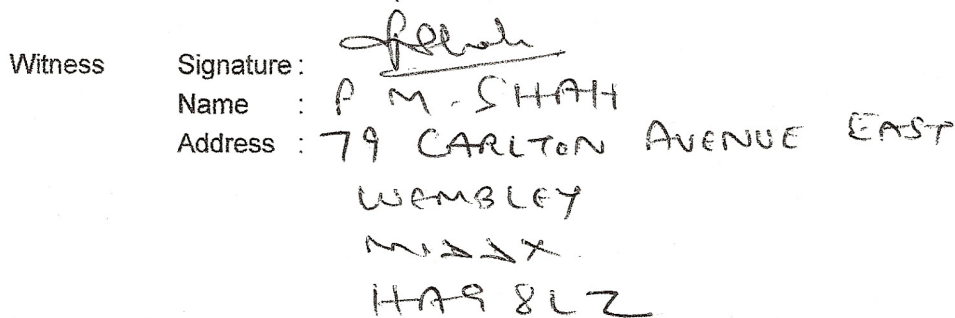 Witness Signature: PShah
Name : P M. SHAH
Address : 79 CARLTON AVENUE EAST
WEMBLEY
MIDDX.
HA9 8LZ